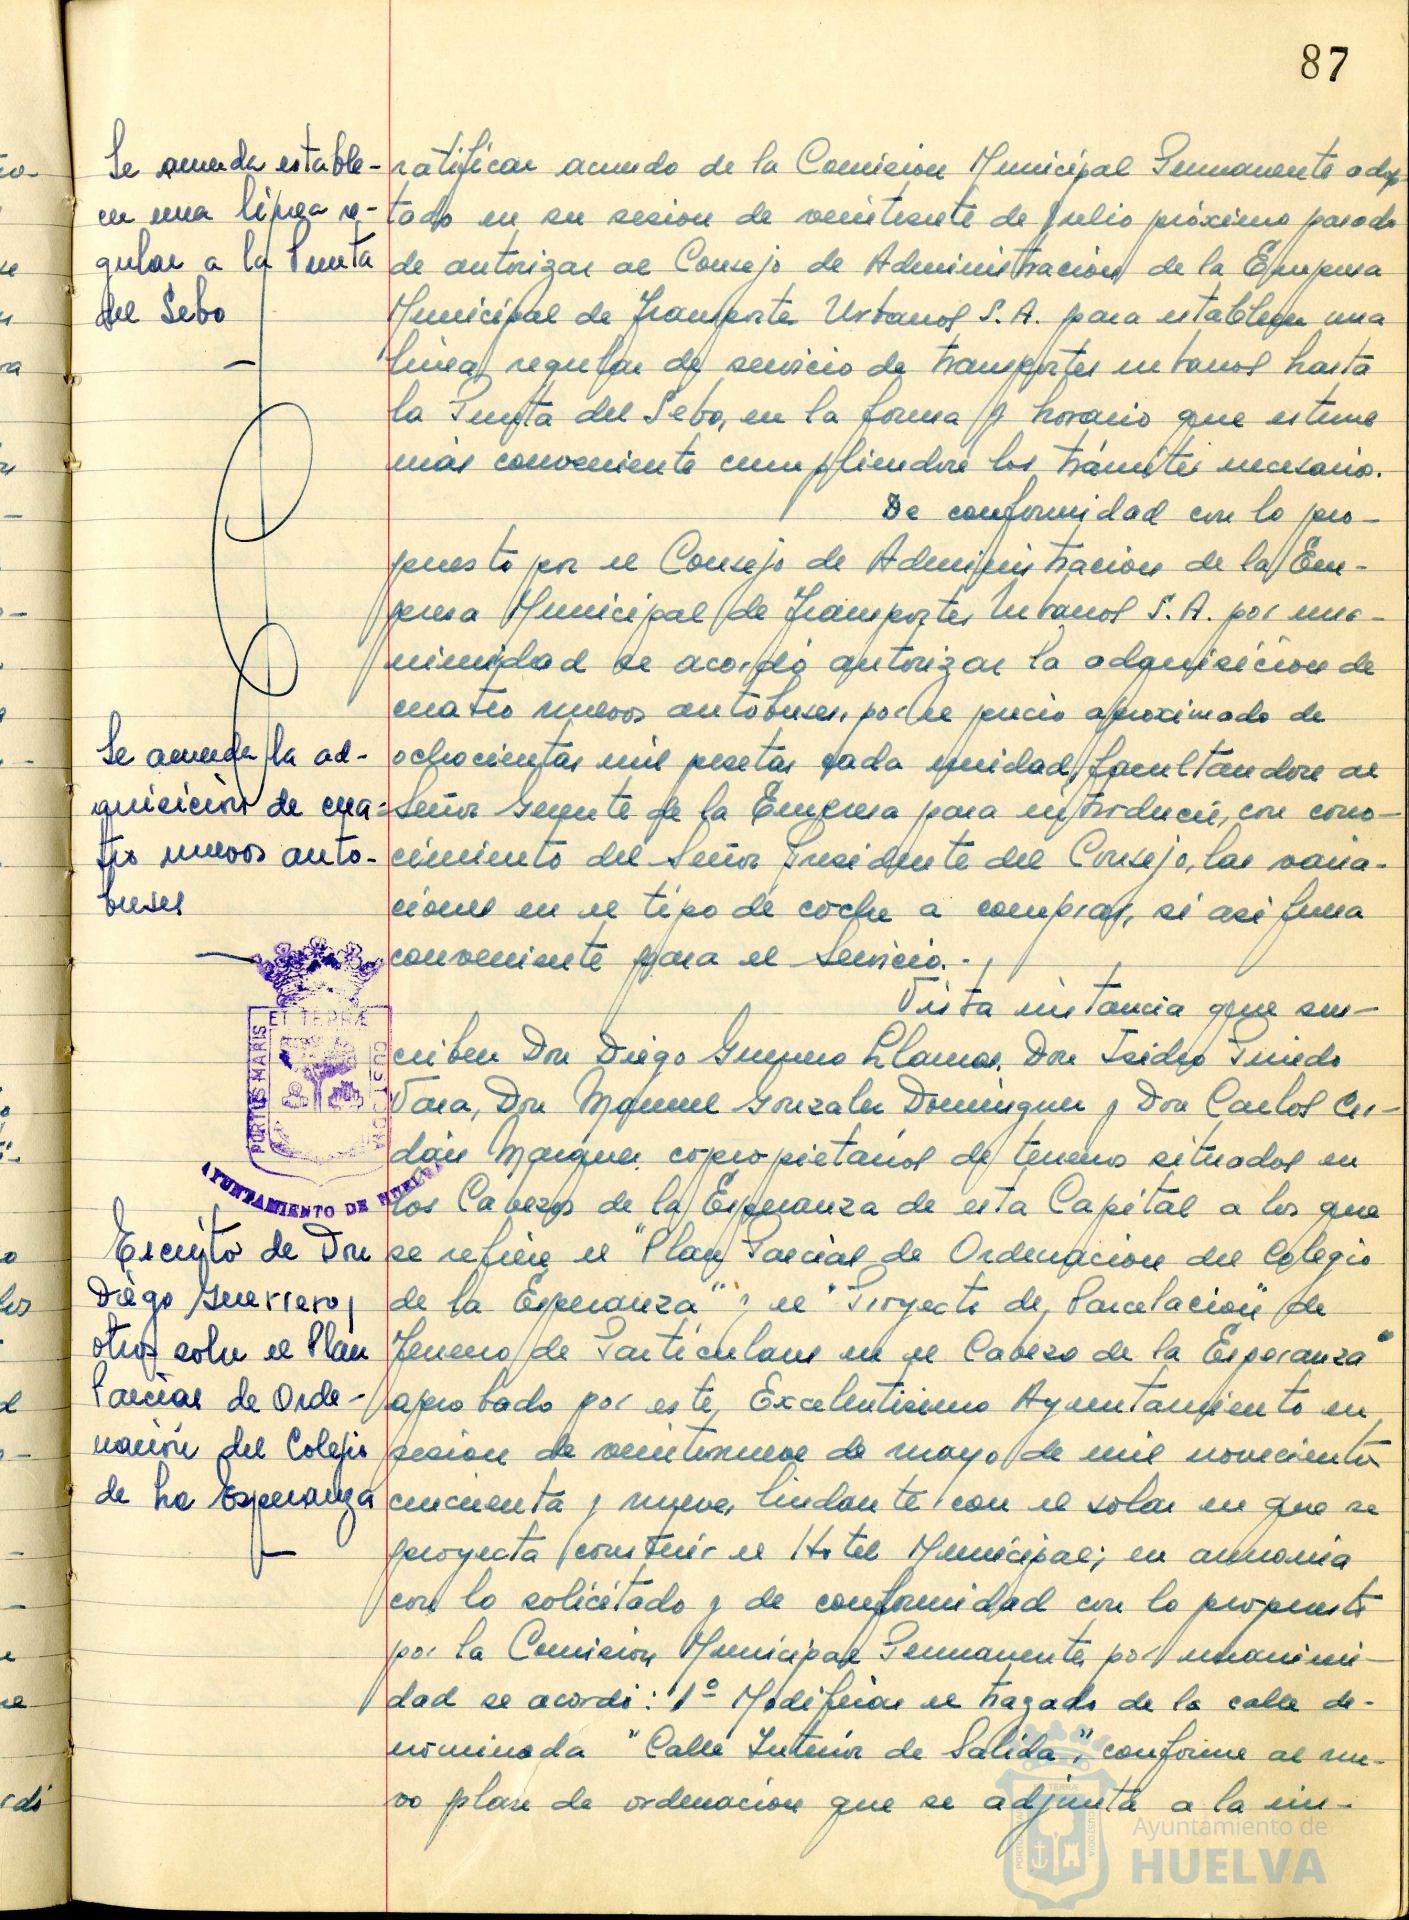 87
Se acuerda estable-
cer una línea re-
gular a la Punta
del Sebo
ratificar acuerdo de la Comision Municipal Permanente adop-
tado en su sesion de veintisiete de julio próximo pasado
de autorizar al Consejo de Administracion de la Empresa
Municipal de Transportes Urbanos S. A. para establecer una
linea regular de servicio de transportes urbanos hasta
la Punta del Sebo, en la forma y horario que estime
más conveniente cumpliendose los trámites necesarios.
De conformidad con lo pro-
puesto por el Consejo de Administracion de la Em-
presa Municipal de Transportes Urbanos S. A. por una-
nimidad se acordó autorizar la adquisicion de
cuatro nuevos autobuses, por el precio aproximado de
Se acuerda la ad-
quisición de cua-
tro nuevos auto-
buses
ochocientas mil pesetas cada unidad, facultandose al
Señor Gerente de la Empresa para introducir, con cono-
cimiento del Señor Presidente del Consejo, las varia-
ciones en el tipo de coche a comprar, si asi fuera
conveniente para el servicio.-
Vista instancia que sus-
criben Don Diego Guerrero Llamas, Don Isidro Pinedo
Vara, Don Manuel Gonzalez Dominguez y Don Carlos Cer-
dán Marquez copropietarios de terrenos situados en
los Cabezos de la Esperanza de esta Capital a los que
PORTUS MARIS ET TERRÆ CUSTODIA
AYUNTAMIENTO DE HUELVA
Escrito de Don
Diego Guerrero y
otros sobre el Plan
Parcial de Orde-
nación del Colegio
de La Esperanza
se refiere el "Plan Parcial de Ordenacion del Colegio
de la Esperanza" y el "Proyecto de Parcelacion" de
Terreno de Particulares en el Cabezo de la Esperanza"
aprobado por este Excelentisimo Ayuntamiento en
sesion de veintinueve de mayo de mil novecientos
cincuenta y nueve, lindante con el solar en que se
proyecta construir el Hotel Municipal; en armonia
con lo solicitado y de conformidad con lo propuesto
por la Comision Municipal Permanente, por unanimi-
dad se acordó: 1º Modificar el trazado de la calle de-
nominada "Calle Interior de Salida", conforme al nue-
vo plan de ordenacion que se adjunta a la ins-
Ayuntamiento de
HUELVA